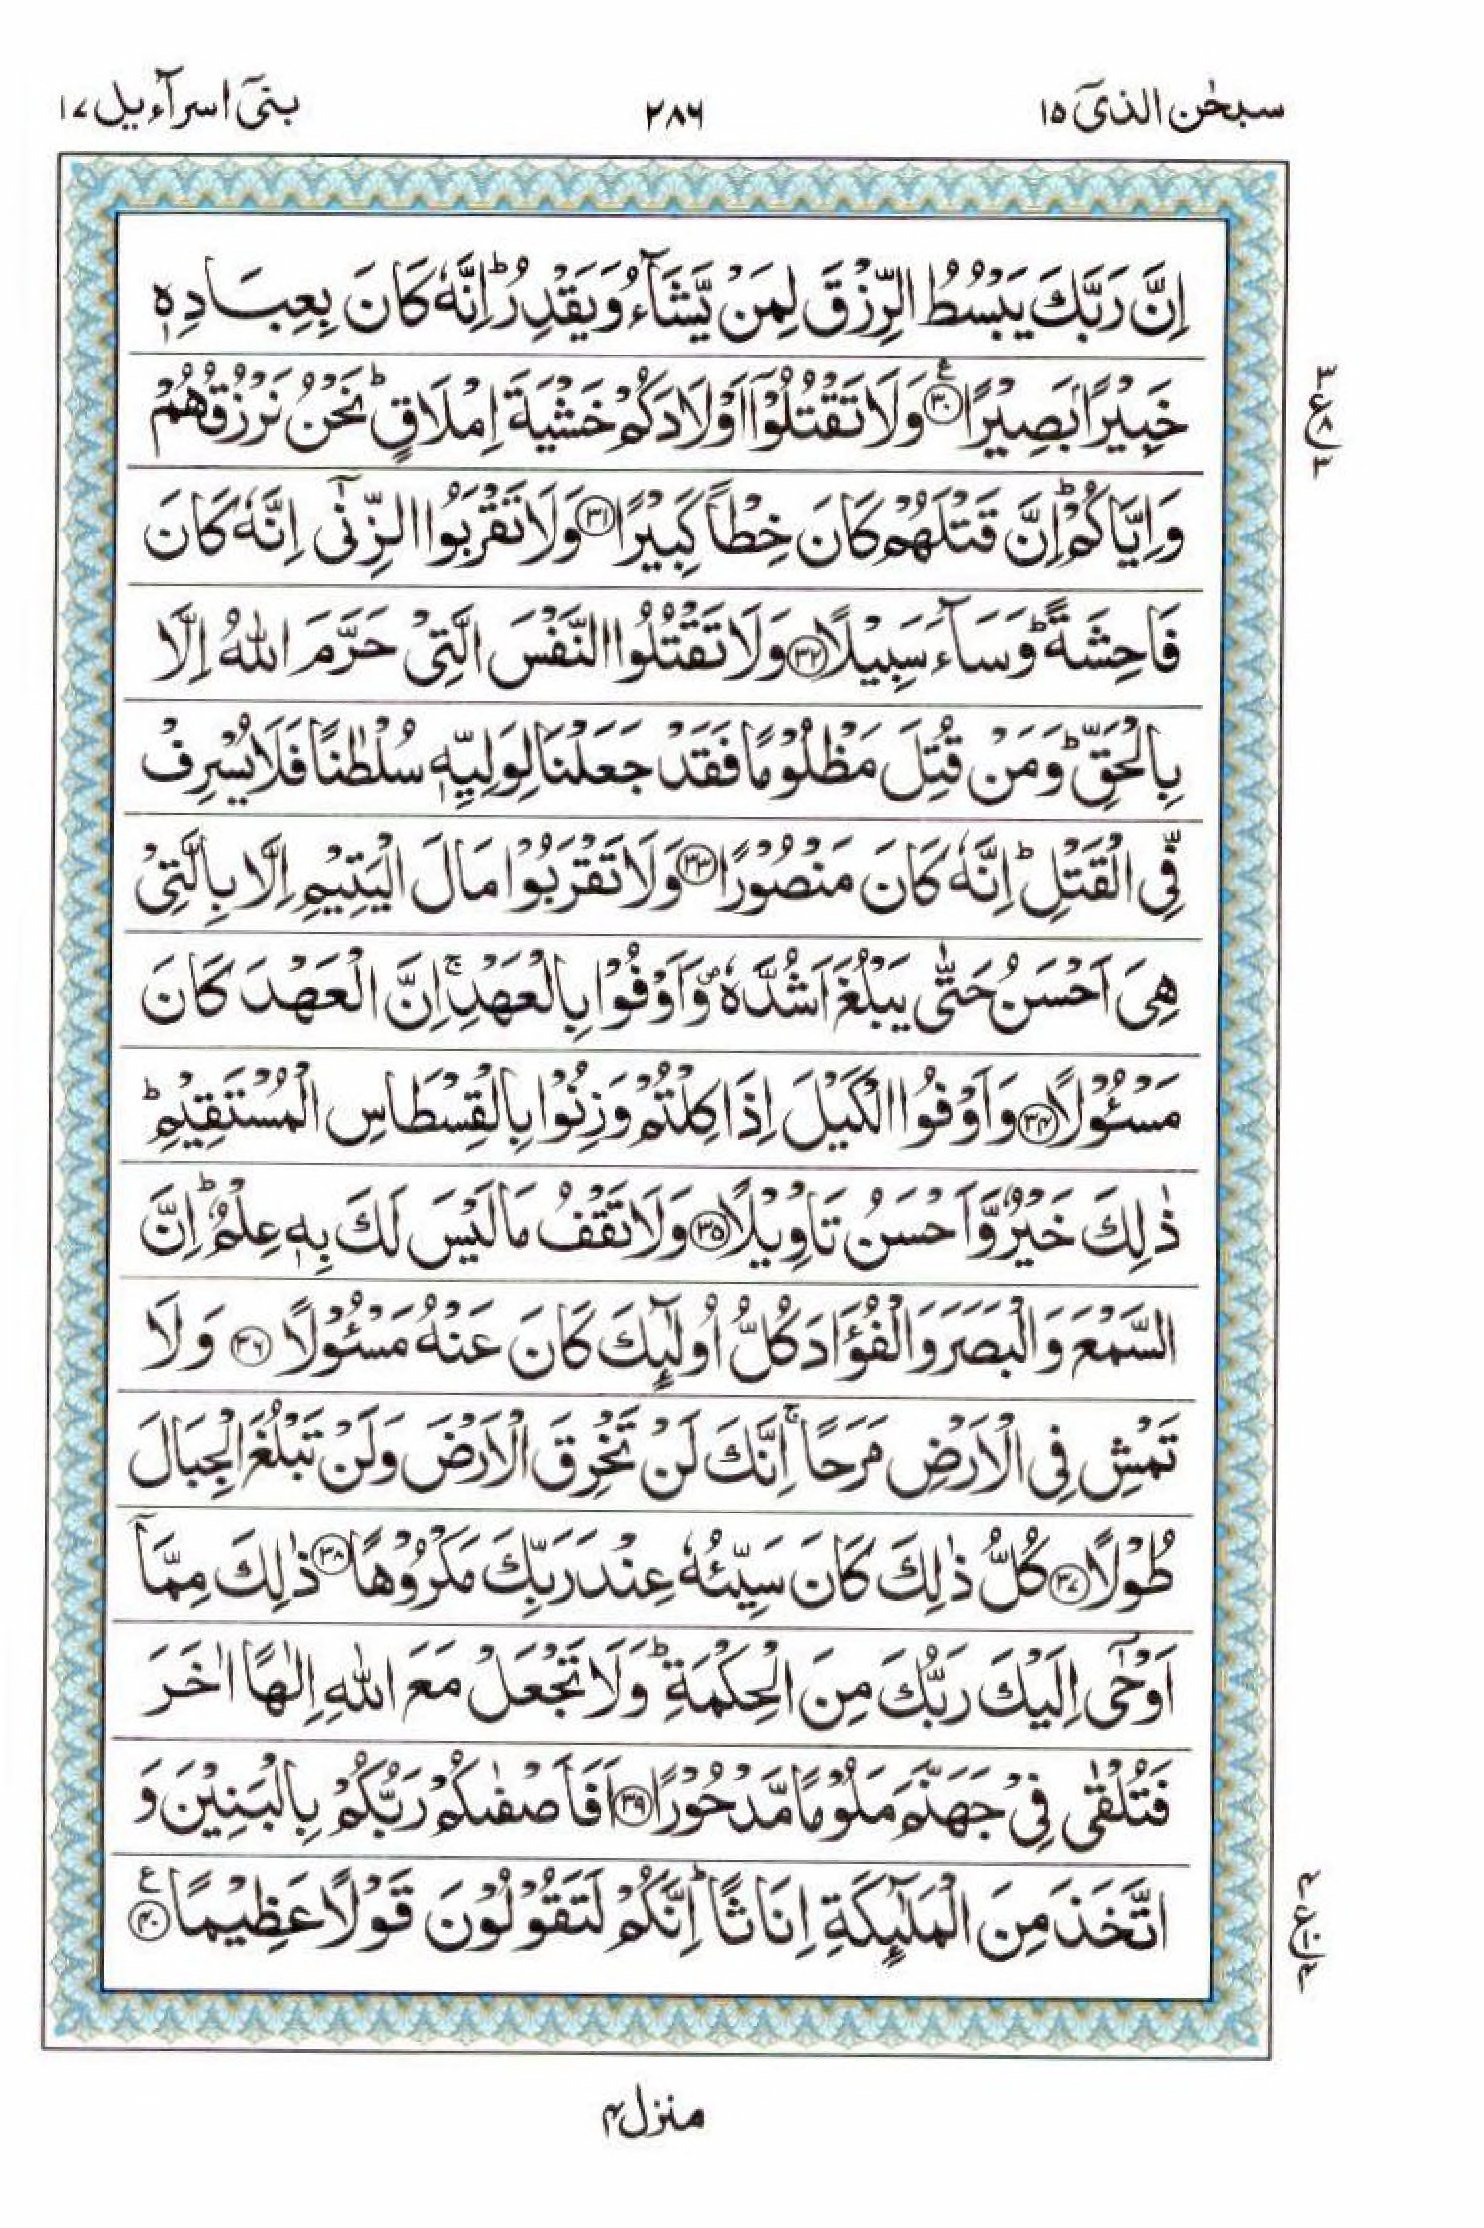 سبحٰن الذیٓ ۱۵
۲۸۶
بنیٓ اسرآءیل ۱۷
اِنَّ رَبَّكَ يَبْسُطُ الرِّزْقَ لِمَنْ يَّشَآءُ وَيَقْدِرُ ؕ اِنَّهٗ كَانَ بِعِبَادِهٖ
خَبِيْرًۢا بَصِيْرًا ۳۰ ع وَلَا تَقْتُلُوْٓا اَوْلَادَكُمْ خَشْيَةَ اِمْلَاقٍ ؕ نَحْنُ نَرْزُقُهُمْ
وَاِيَّاكُمْ ؕ اِنَّ قَتْلَهُمْ كَانَ خِطْاً كَبِيْرًا ۳۱ وَلَا تَقْرَبُوا الزِّنٰٓى اِنَّهٗ كَانَ
فَاحِشَةً ؕ وَسَآءَ سَبِيْلًا ۳۲ وَلَا تَقْتُلُوا النَّفْسَ الَّتِيْ حَرَّمَ اللّٰهُ اِلَّا
بِالْحَقِّ ؕ وَمَنْ قُتِلَ مَظْلُوْمًا فَقَدْ جَعَلْنَا لِوَلِيِّهٖ سُلْطٰنًا فَلَا يُسْرِفْ
فِّي الْقَتْلِ ؕ اِنَّهٗ كَانَ مَنْصُوْرًا ۳۳ وَلَا تَقْرَبُوْا مَالَ الْيَتِيْمِ اِلَّا بِالَّتِيْ
هِيَ اَحْسَنُ حَتّٰى يَبْلُغَ اَشُدَّهٗ ۪ وَاَوْفُوْا بِالْعَهْدِ ۚ اِنَّ الْعَهْدَ كَانَ
مَسْـُٔوْلًا ۳۴ وَاَوْفُوا الْكَيْلَ اِذَا كِلْتُمْ وَزِنُوْا بِالْقِسْطَاسِ الْمُسْتَقِيْمِ ؕ
ذٰلِكَ خَيْرٌ وَّاَحْسَنُ تَاْوِيْلًا ۳۵ وَلَا تَقْفُ مَا لَيْسَ لَكَ بِهٖ عِلْمٌ ؕ اِنَّ
السَّمْعَ وَالْبَصَرَ وَالْفُؤَادَ كُلُّ اُولٰٓئِكَ كَانَ عَنْهُ مَسْـُٔوْلًا ۳۶ وَلَا
تَمْشِ فِي الْاَرْضِ مَرَحًا ۚ اِنَّكَ لَنْ تَخْرِقَ الْاَرْضَ وَلَنْ تَبْلُغَ الْجِبَالَ
طُوْلًا ۳۷ كُلُّ ذٰلِكَ كَانَ سَيِّئُهٗ عِنْدَ رَبِّكَ مَكْرُوْهًا ۳۸ ذٰلِكَ مِمَّآ
اَوْحٰٓى اِلَيْكَ رَبُّكَ مِنَ الْحِكْمَةِ ؕ وَلَا تَجْعَلْ مَعَ اللّٰهِ اِلٰهًا اٰخَرَ
فَتُلْقٰى فِيْ جَهَنَّمَ مَلُوْمًا مَّدْحُوْرًا ۳۹ اَفَاَصْفٰىكُمْ رَبُّكُمْ بِالْبَنِيْنَ وَ
اتَّخَذَ مِنَ الْمَلٰٓئِكَةِ اِنَاثًا ؕ اِنَّكُمْ لَتَقُوْلُوْنَ قَوْلًا عَظِيْمًا ۴۰ ع
۳
ع
۸
۳
۴
ع
۱۰
۴
منزل ۴